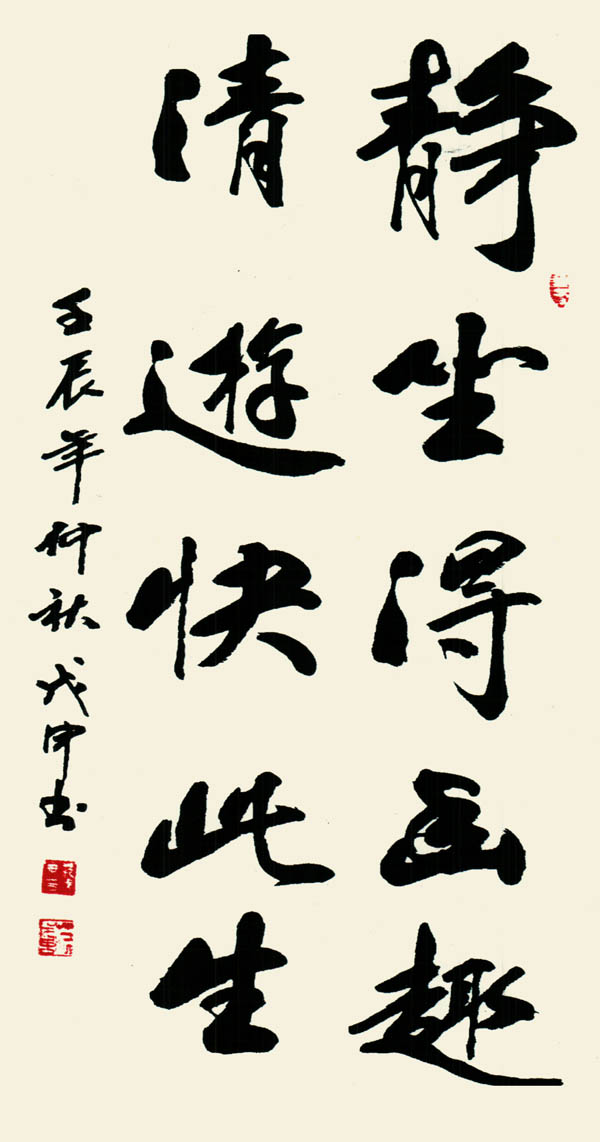 静坐得幽趣
清遊快此生
壬辰年仲秋戊申书